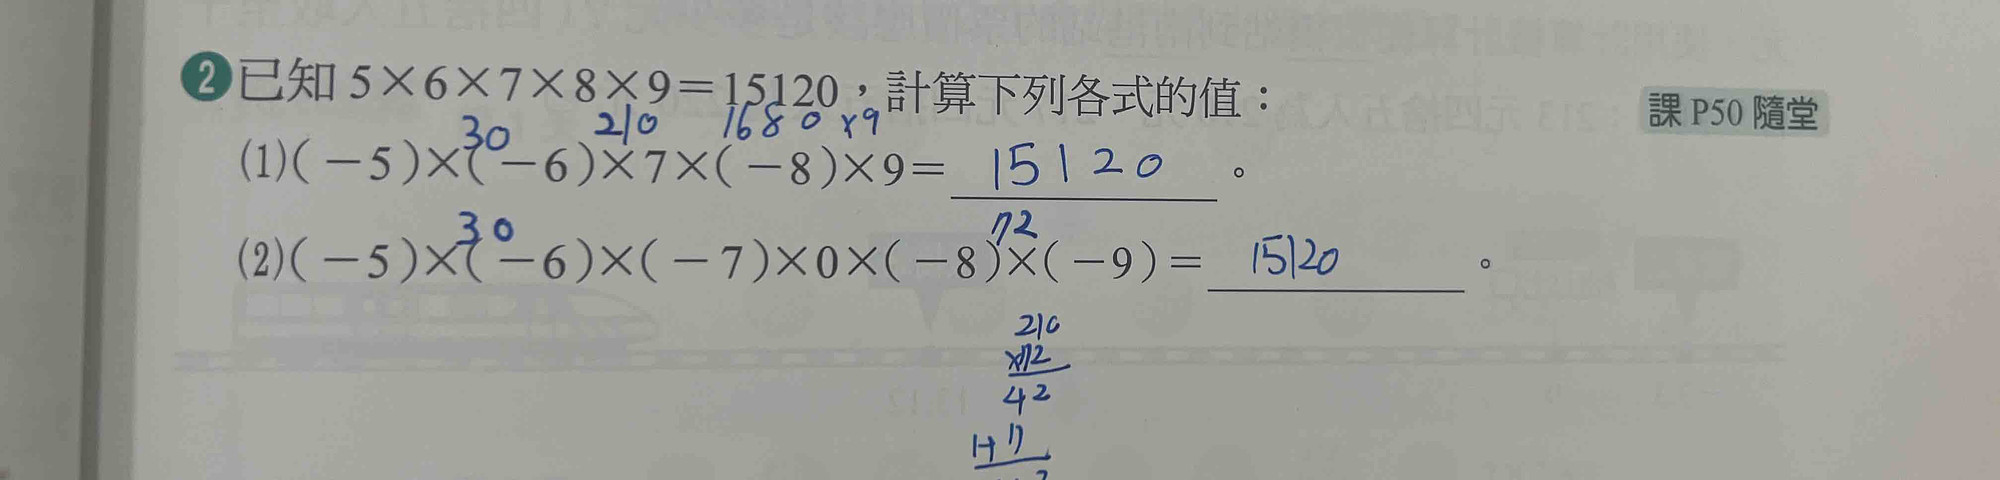 2 已知 5×6×7×8×9=15120，計算下列各式的值：
課 P50 隨堂
30 210 1680 ×9
(1)(－5)×(－6)×7×(－8)×9= 15120 。
30 72
(2)(－5)×(－6)×(－7)×0×(－8)×(－9)= 15120 。
210
×72
42